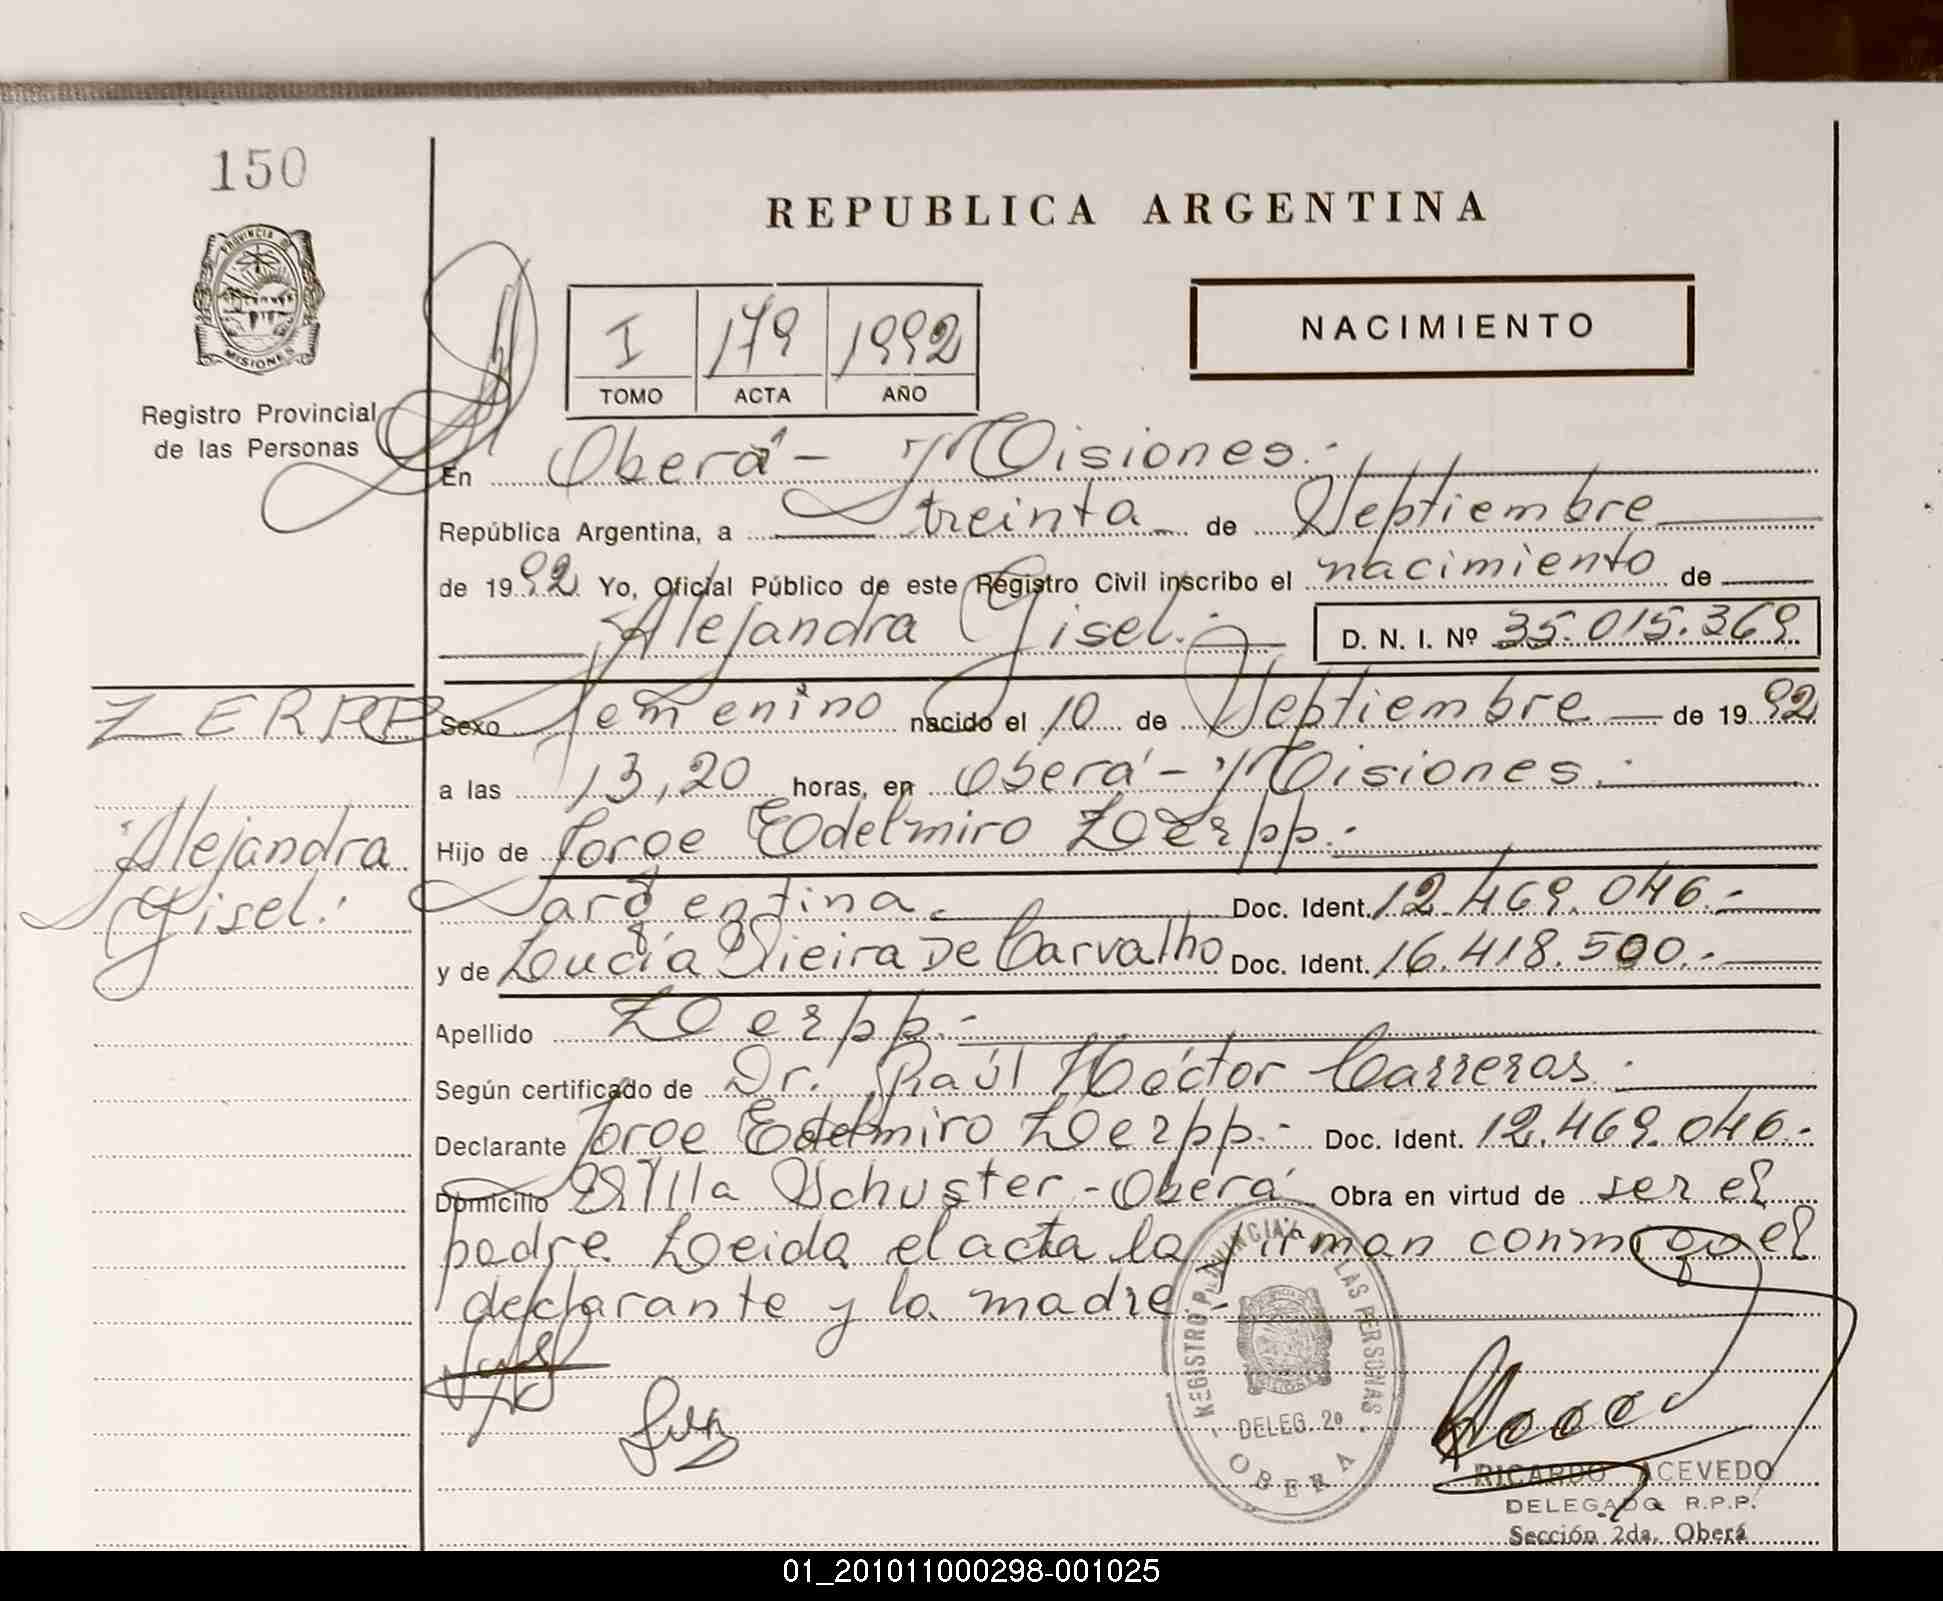 150
REPUBLICA ARGENTINA
PROVINCIA DE
MISIONES
Registro Provincial
de las Personas
I 179 1992
TOMO ACTA AÑO
NACIMIENTO
En Oberá - Misiones.-
República Argentina, a treinta de Septiembre
de 1992 Yo, Oficial Público de este Registro Civil inscribo el nacimiento de
Alejandra Gisel.- D. N. I. Nº 35.015.369
ZERPP
Sexo femenino nacido el 10 de Septiembre de 1992
a las 13,20 horas, en Oberá - Misiones.-
Alejandra
Gisel.-
Hijo de Jorge Edelmiro Zerpp.-
argentina Doc. Ident. 12.469.046.-
y de Lucía Vieira De Carvalho Doc. Ident. 16.418.500.-
Apellido Zerpp.-
Según certificado de Dr. Raúl Héctor Carreras.-
Declarante Jorge Edelmiro Zerpp.- Doc. Ident. 12.469.046.-
Domicilio Villa Schuster - Oberá Obra en virtud de ser el
padre. Leida el acta la firman conmigo el
declarante y la madre.-
REGISTRO PROVINCIAL DE LAS PERSONAS
DELEG. 2a
OBERA
RICARDO ACEVEDO
DELEGADO R.P.P.
Sección 2da. Oberá
01_201011000298-001025